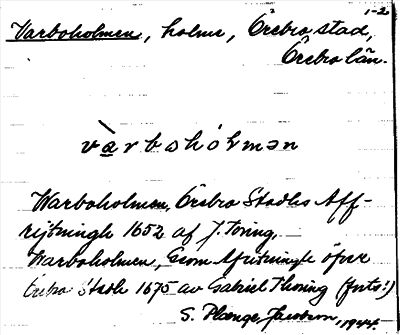 1-2
Varboholmen, holme, Örebro stad,
Örebro län.
và̱rbohólmən
Warboholmen, Örebro Stadhs Aff-
rijtningh 1652 af J. Toring,
Warboholmen, Geom Afritningh öfver
Örebro Stadh 1675 av Gabriel Thoring (forts!)
S. Plænge Jacobson, 1944.